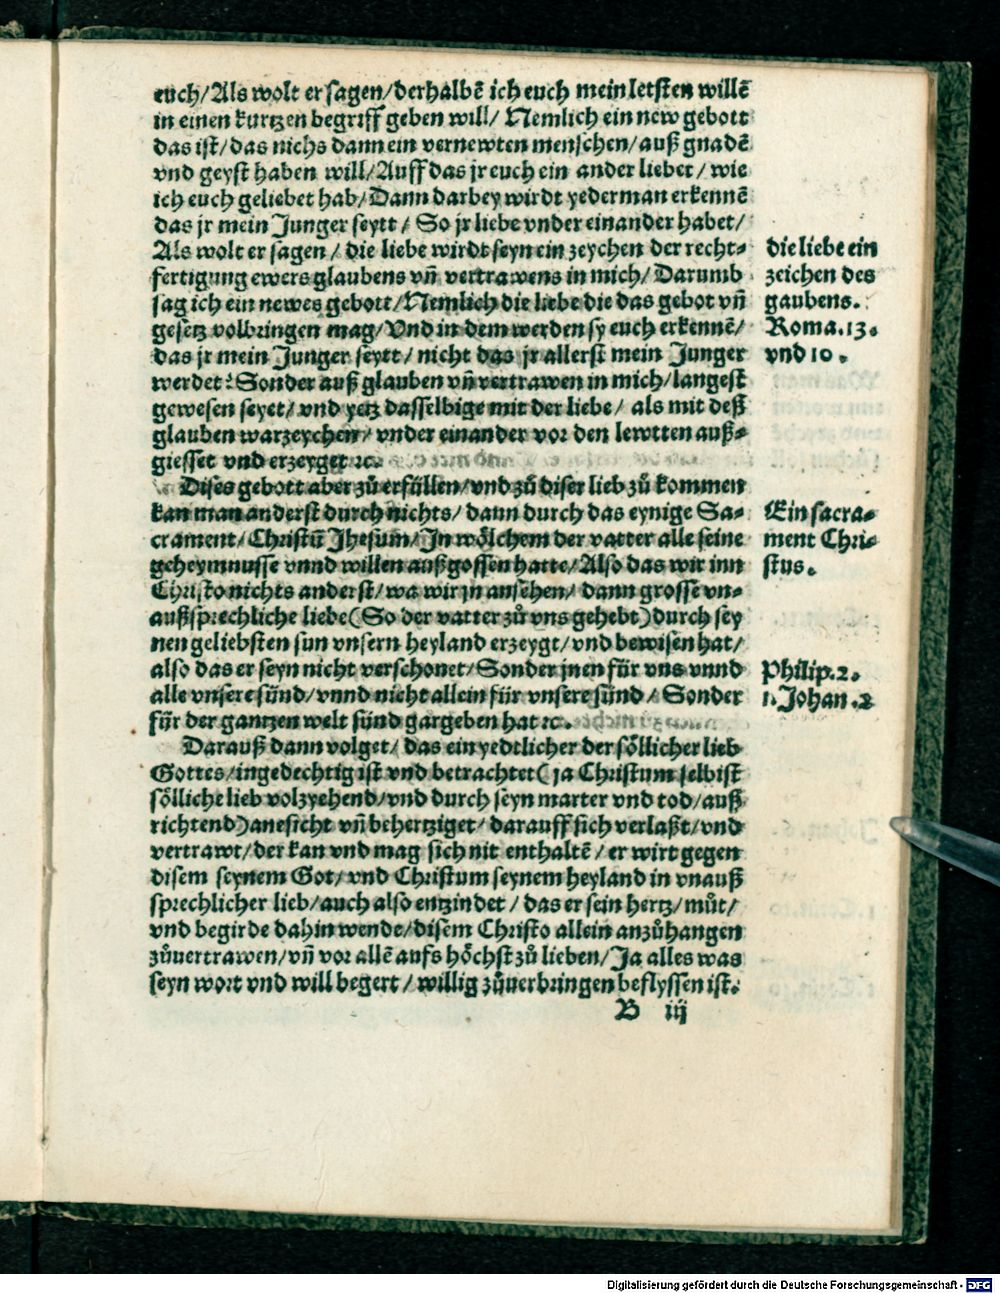 euch/Als wolt er sagen/derhalbē ich euch mein letsten willē
in einen kurtzen begriff geben will/ Nemlich ein new gebott
das ist/das nichs dann ein vernewten menschen/auß gnadē
vnd geyst haben will/Auff das jr euch ein ander liebet/wie
ich euch geliebet hab/Dann darbey wirdt yederman erkennē
das jr mein Junger seytt/ So jr liebe vnder einander habet/
Als wolt er sagen/ die liebe wirdt seyn ein zeychen der recht⸗
fertigung ewers glaubens vñ vertrawens in mich/Darumb
sag ich ein newes gebott/Nemlich die liebe die das gebot vñ
gesetz volbringen mag/Vnd in dem werden sy euch erkennē/
das jr mein Junger seytt/nicht das jr allerst mein Junger
werdet: Sonder auß glauben vñ vertrawen in mich/langest
gewesen seyet/vnd yetz dasselbige mit der liebe/ als mit deß
glauben warzeychen/vnder einander vor den lewtten auß⸗
giesset vnd erzeyget ꝛc.
Dises gebott aber zů erfüllen/vnd zů diser lieb zů kommen
kan man anderst durch nichts/dann durch das eynige Sa⸗
crament/Christū Jhesum/In wölchem der vatter alle seine
geheymnusse vnnd willen außgossen hatte/Also das wir inn
Christo nichts anderst/wa wir jn ansehen/dann grosse vn⸗
außsprechliche liebe(So der vatter zů vns gehebt)durch sey
nen geliebsten sun vnsern heyland erzeygt/vnd bewisen hat/
also das er seyn nicht verschonet/Sonder jnen für vns vnnd
alle vnsere sünd/vnnd nicht allein für vnsere sünd/Sonder
für der gantzen welt sünd gargeben hat ꝛc.
Darauß dann volget/das ein yedtlicher der söllicher lieb
Gottes/ingedechtig ist vnd betrachtet(ja Christum selbist
sölliche lieb volzyehend/vnd durch seyn marter vnd tod/auß
richtend)anesicht vñ behertziget/darauff sich verlaßt/vnd
vertrawt/der kan vnd mag sich nit enthaltē/er wirt gegen
disem seynem Got/vnd Christum seynem heyland in vnauß
sprechlicher lieb/auch also entzindet/das er sein hertz/můt/
vnd begirde dahin wende/disem Christo allein anzůhangen
zůuertrawen/vñ vor allē aufs höchst zů lieben/Ja alles was
seyn wort vnd will begert/willig zůuerbringen beflyssen ist.
B iij
die liebe ein
zeichen des
gaubens.
Roma.13.
vnd 10.
Ein sacra⸗
ment Chri⸗
stus.
Philip.2.
1.Johan.2
Digitalisierung gefördert durch die Deutsche Forschungsgemeinschaft - DFG